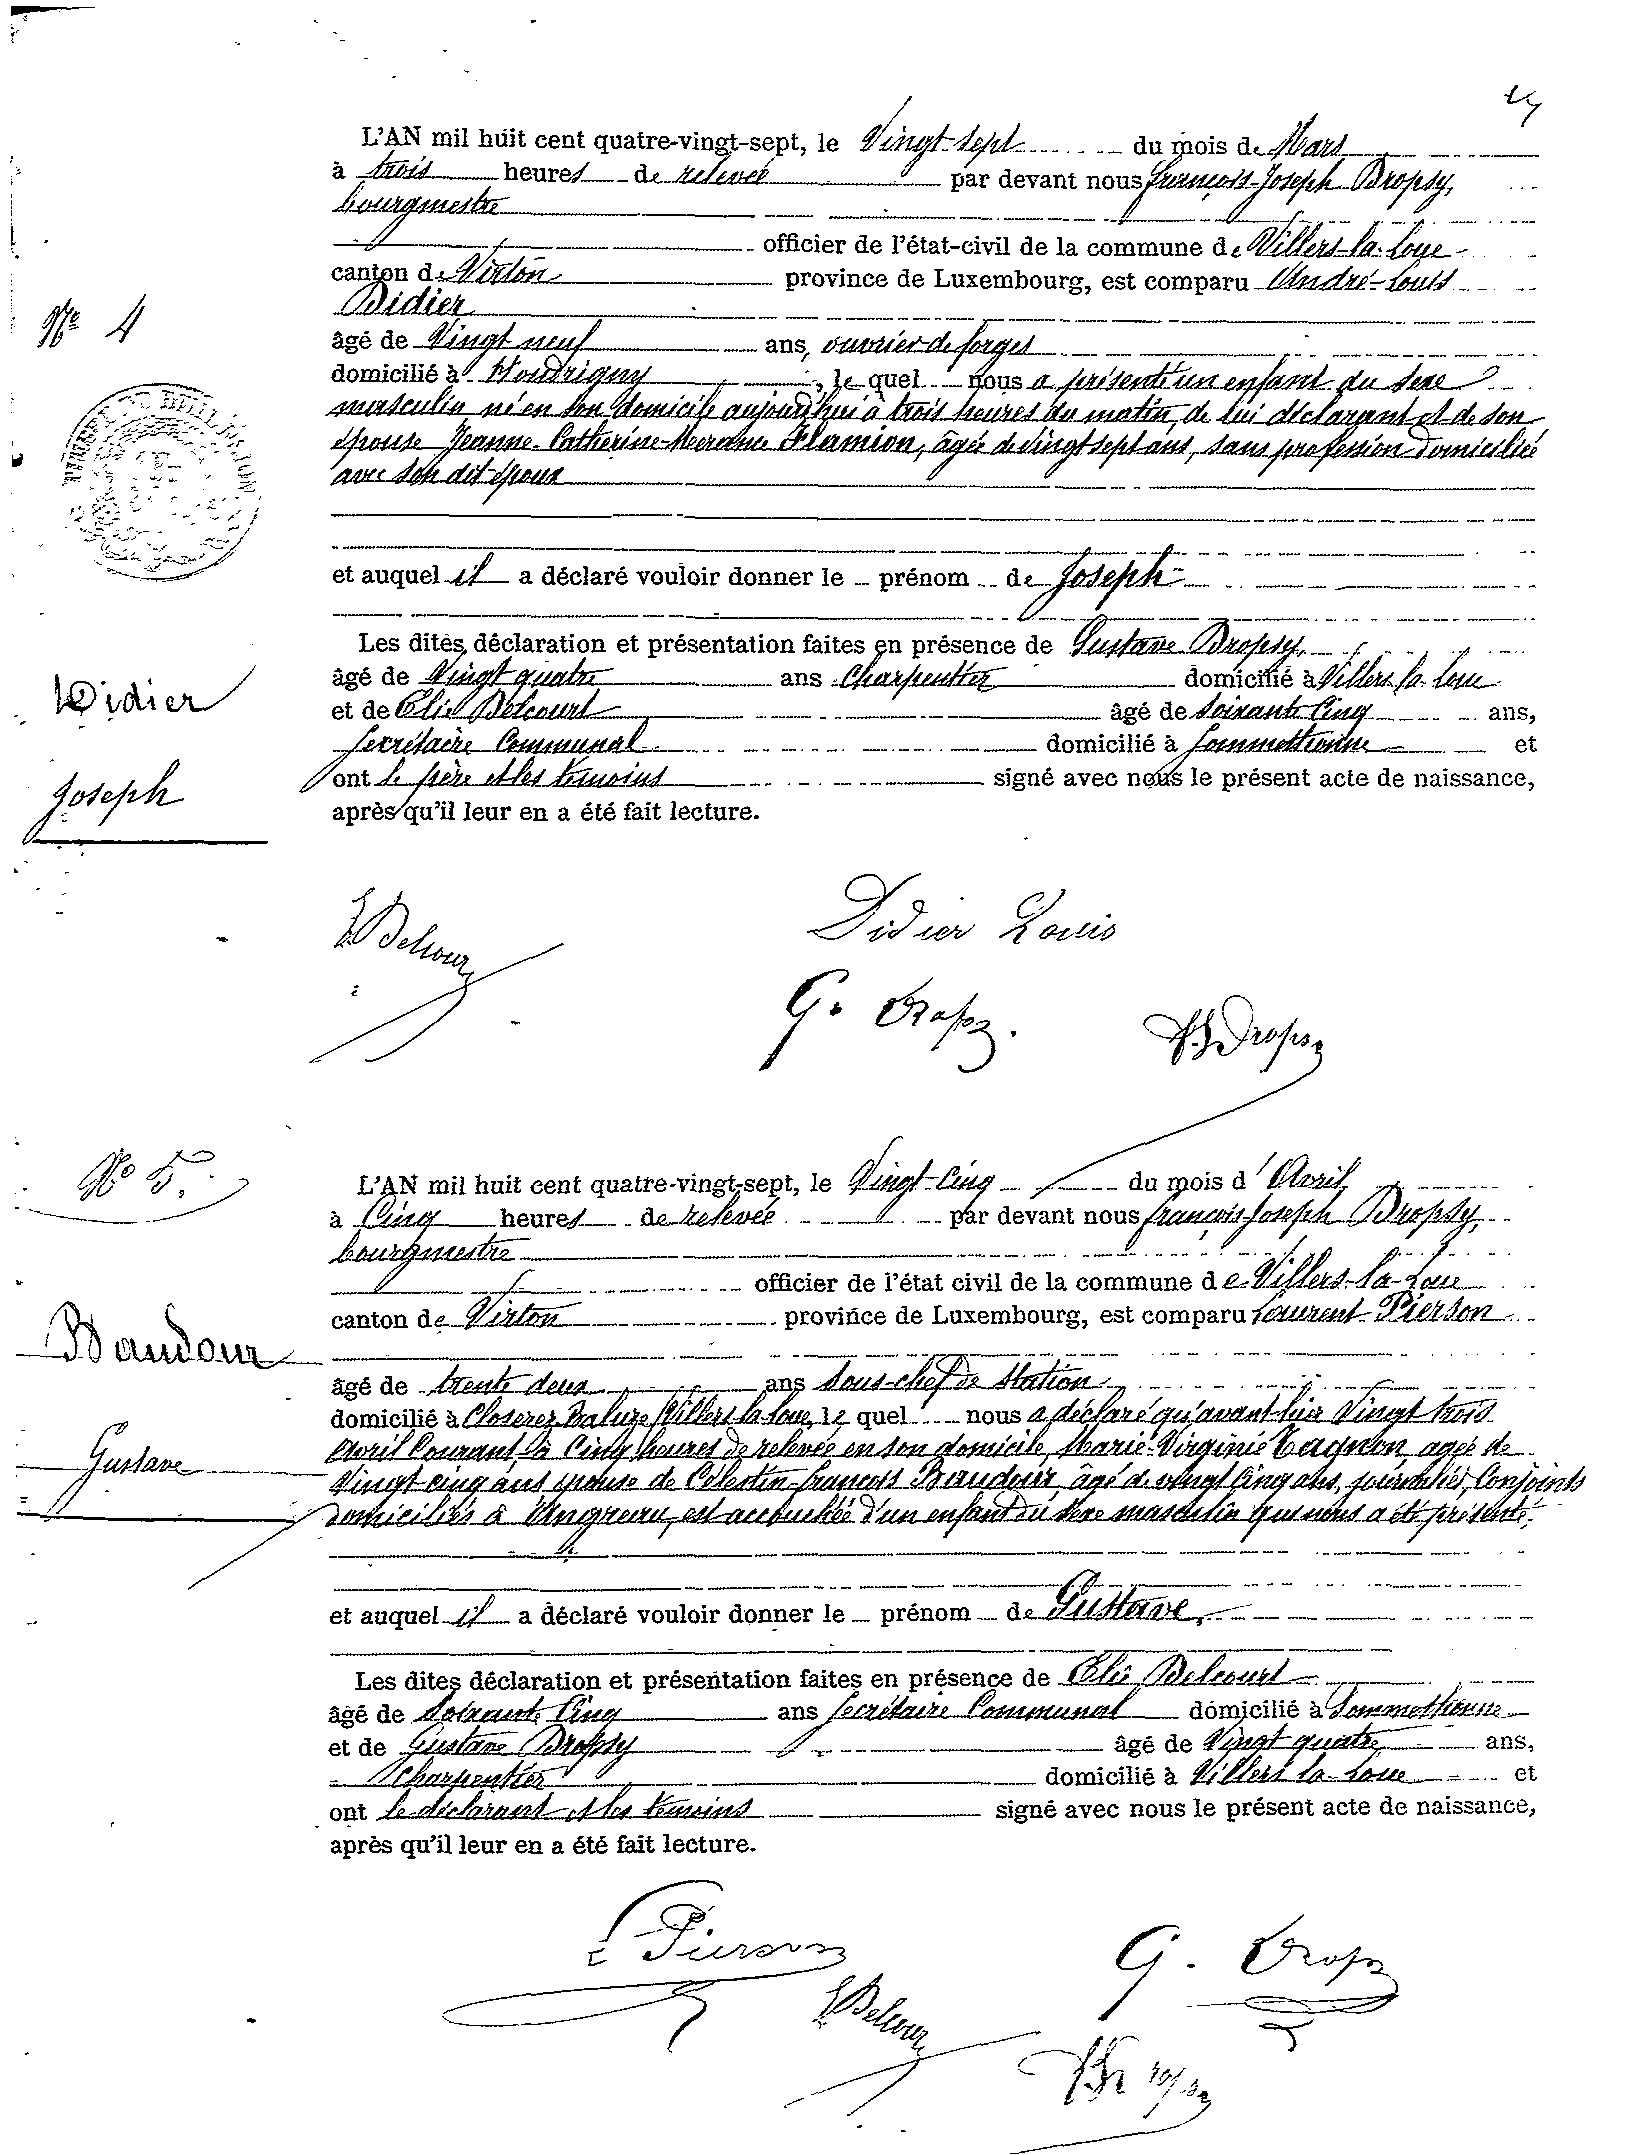 L'AN mil huit cent quatre-vingt-sept, le Vingt-sept du mois de Mars
à trois heures de relevée par devant nous François-Joseph Dropsy,
bourgmestre
officier de l'état-civil de la commune de Villers-la-Loue
canton de Virton province de Luxembourg, est comparu André-Louis
Didier
N° 4
âgé de Vingt neuf ans, ouvrier de forges
domicilié à Houdrigny, le quel nous a présenté un enfant du sexe
masculin né en son domicile aujourd'hui à trois heures du matin, de lui déclarant et de son
épouse Jeanne-Catherine- Flamion, âgée de vingt sept ans, sans profession domiciliée
avec son dit époux
et auquel il a déclaré vouloir donner le prénom de Joseph
Les dites déclaration et présentation faites en présence de Gustave Dropsy,
âgé de Vingt quatre ans Charpentier domicilié à Villers-la-Loue
Didier
et de Elie Belcourt âgé de Soixante Cinq ans,
Secrétaire Communal domicilié à Sommethonne et
Joseph
ont le père et les témoins signé avec nous le présent acte de naissance,
après qu'il leur en a été fait lecture.
E Belcour
Didier Louis
G. Dropsy.
FJ Dropsy
N° 5.
L'AN mil huit cent quatre-vingt-sept, le Vingt-Cinq du mois d'Avril
à Cinq heures de relevée par devant nous François-Joseph Dropsy,
bourgmestre
officier de l'état civil de la commune de Villers-la-Loue
canton de Virton province de Luxembourg, est comparu Laurent Pierson
Baudour
âgé de trente deux ans Sous-chef de Station
domicilié à Villers-la-Loue, le quel nous a déclaré qu'avant-hier Vingt trois
Avril Courant, à Cinq heures de relevée en son domicile, Marie-Virginie Cagnon, agée de
Gustave
Vingt-cinq ans épouse de Célestin-François Baudour, âgé de vingt Cinq ans, journalier, Conjoints
domiciliés à Angreau, est accouchée d'un enfant du sexe masculin qui nous a été présenté,
et auquel il a déclaré vouloir donner le prénom de Gustave,
Les dites déclaration et présentation faites en présence de Elie Belcourt
âgé de Soixante Cinq ans Secrétaire Communal domicilié à Sommethonne
et de Gustave Dropsy âgé de Vingt quatre ans,
Charpentier domicilié à Villers-la-Loue et
ont le déclarant et les témoins signé avec nous le présent acte de naissance,
après qu'il leur en a été fait lecture.
L Pierson
G. Dropsy
E Belcour